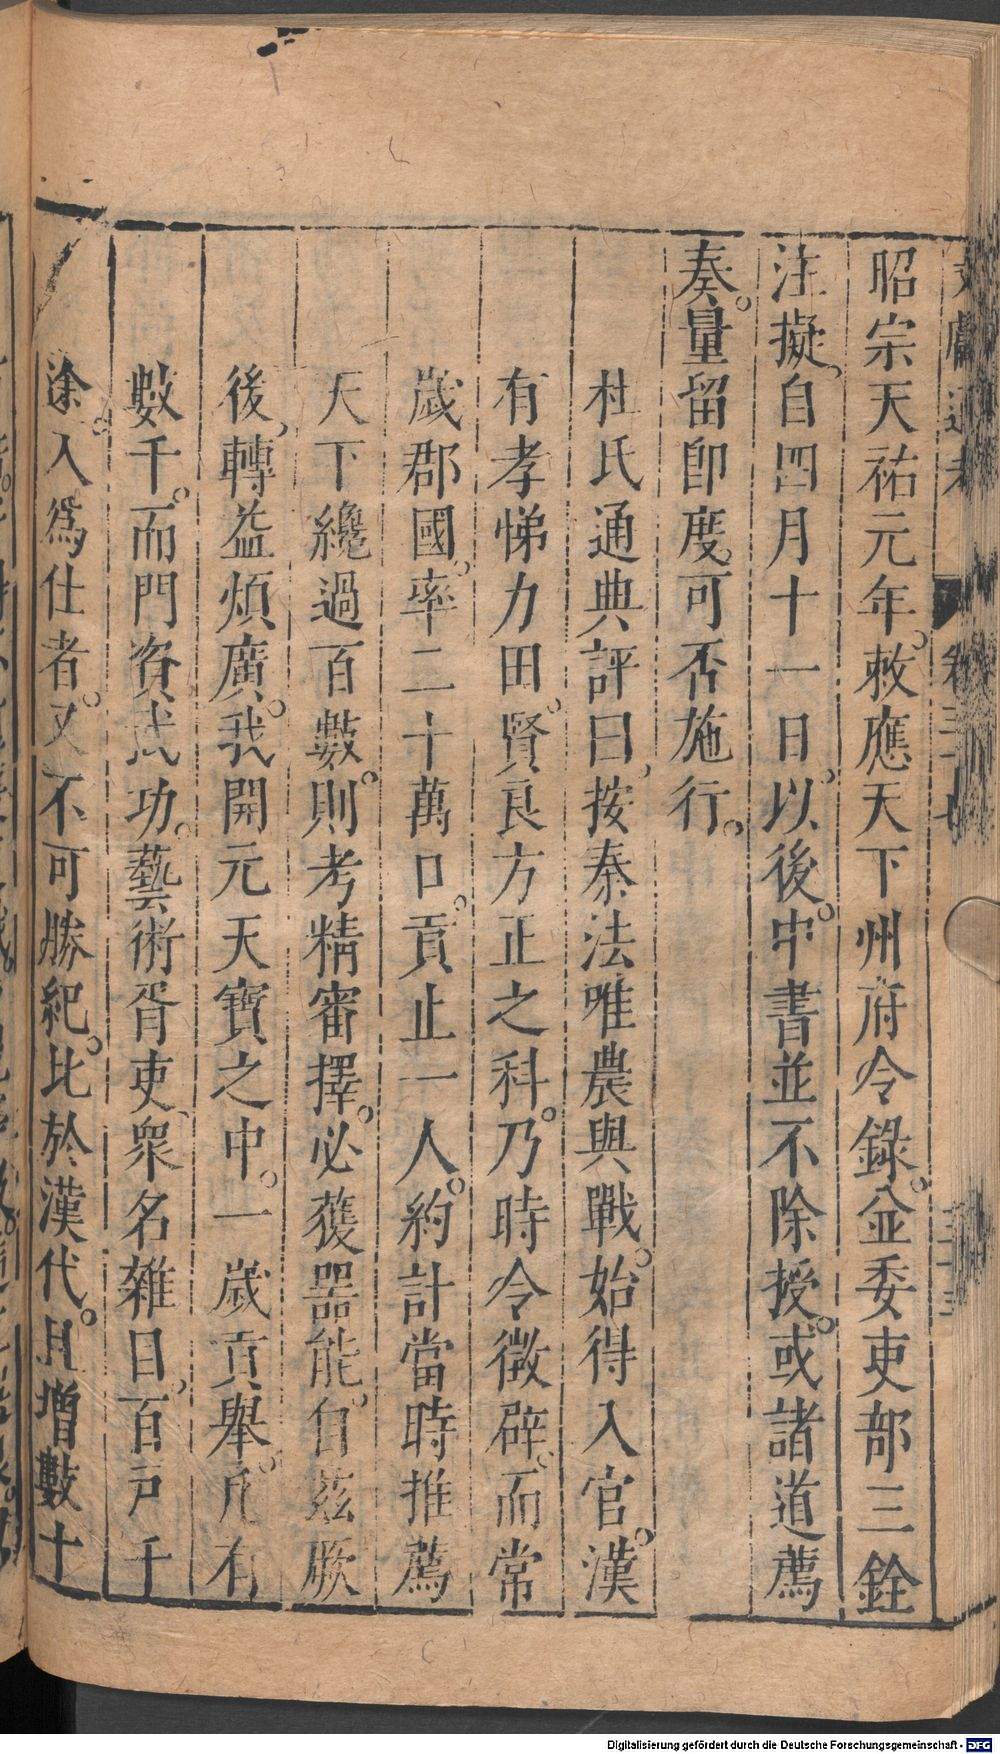 文獻通考 卷三十七 三十三
昭宗天祐元年。敕應天下州府令錄。並委吏部三銓
注擬、自四月十一日、以後。中書並不除授。或諸道薦
奏。量留即度。可否施行。
杜氏通典評曰、按秦法唯農與戰。始得入官。漢
有孝悌力田。賢良方正之科。乃時令徵辟、而常
歲郡國。率二十萬口。貢止一人。約計當時推薦
天下纔過百數。則考精審擇。必獲器能。自茲厥
後、轉益煩廣。我開元天寶之中。一歲貢舉。凡有
數千。而門資武功。藝術胥吏、衆名雜目、百戶千
途。入爲仕者。又不可勝紀。比於漢代。且增數十
Digitalisierung gefördert durch die Deutsche Forschungsgemeinschaft - DFG